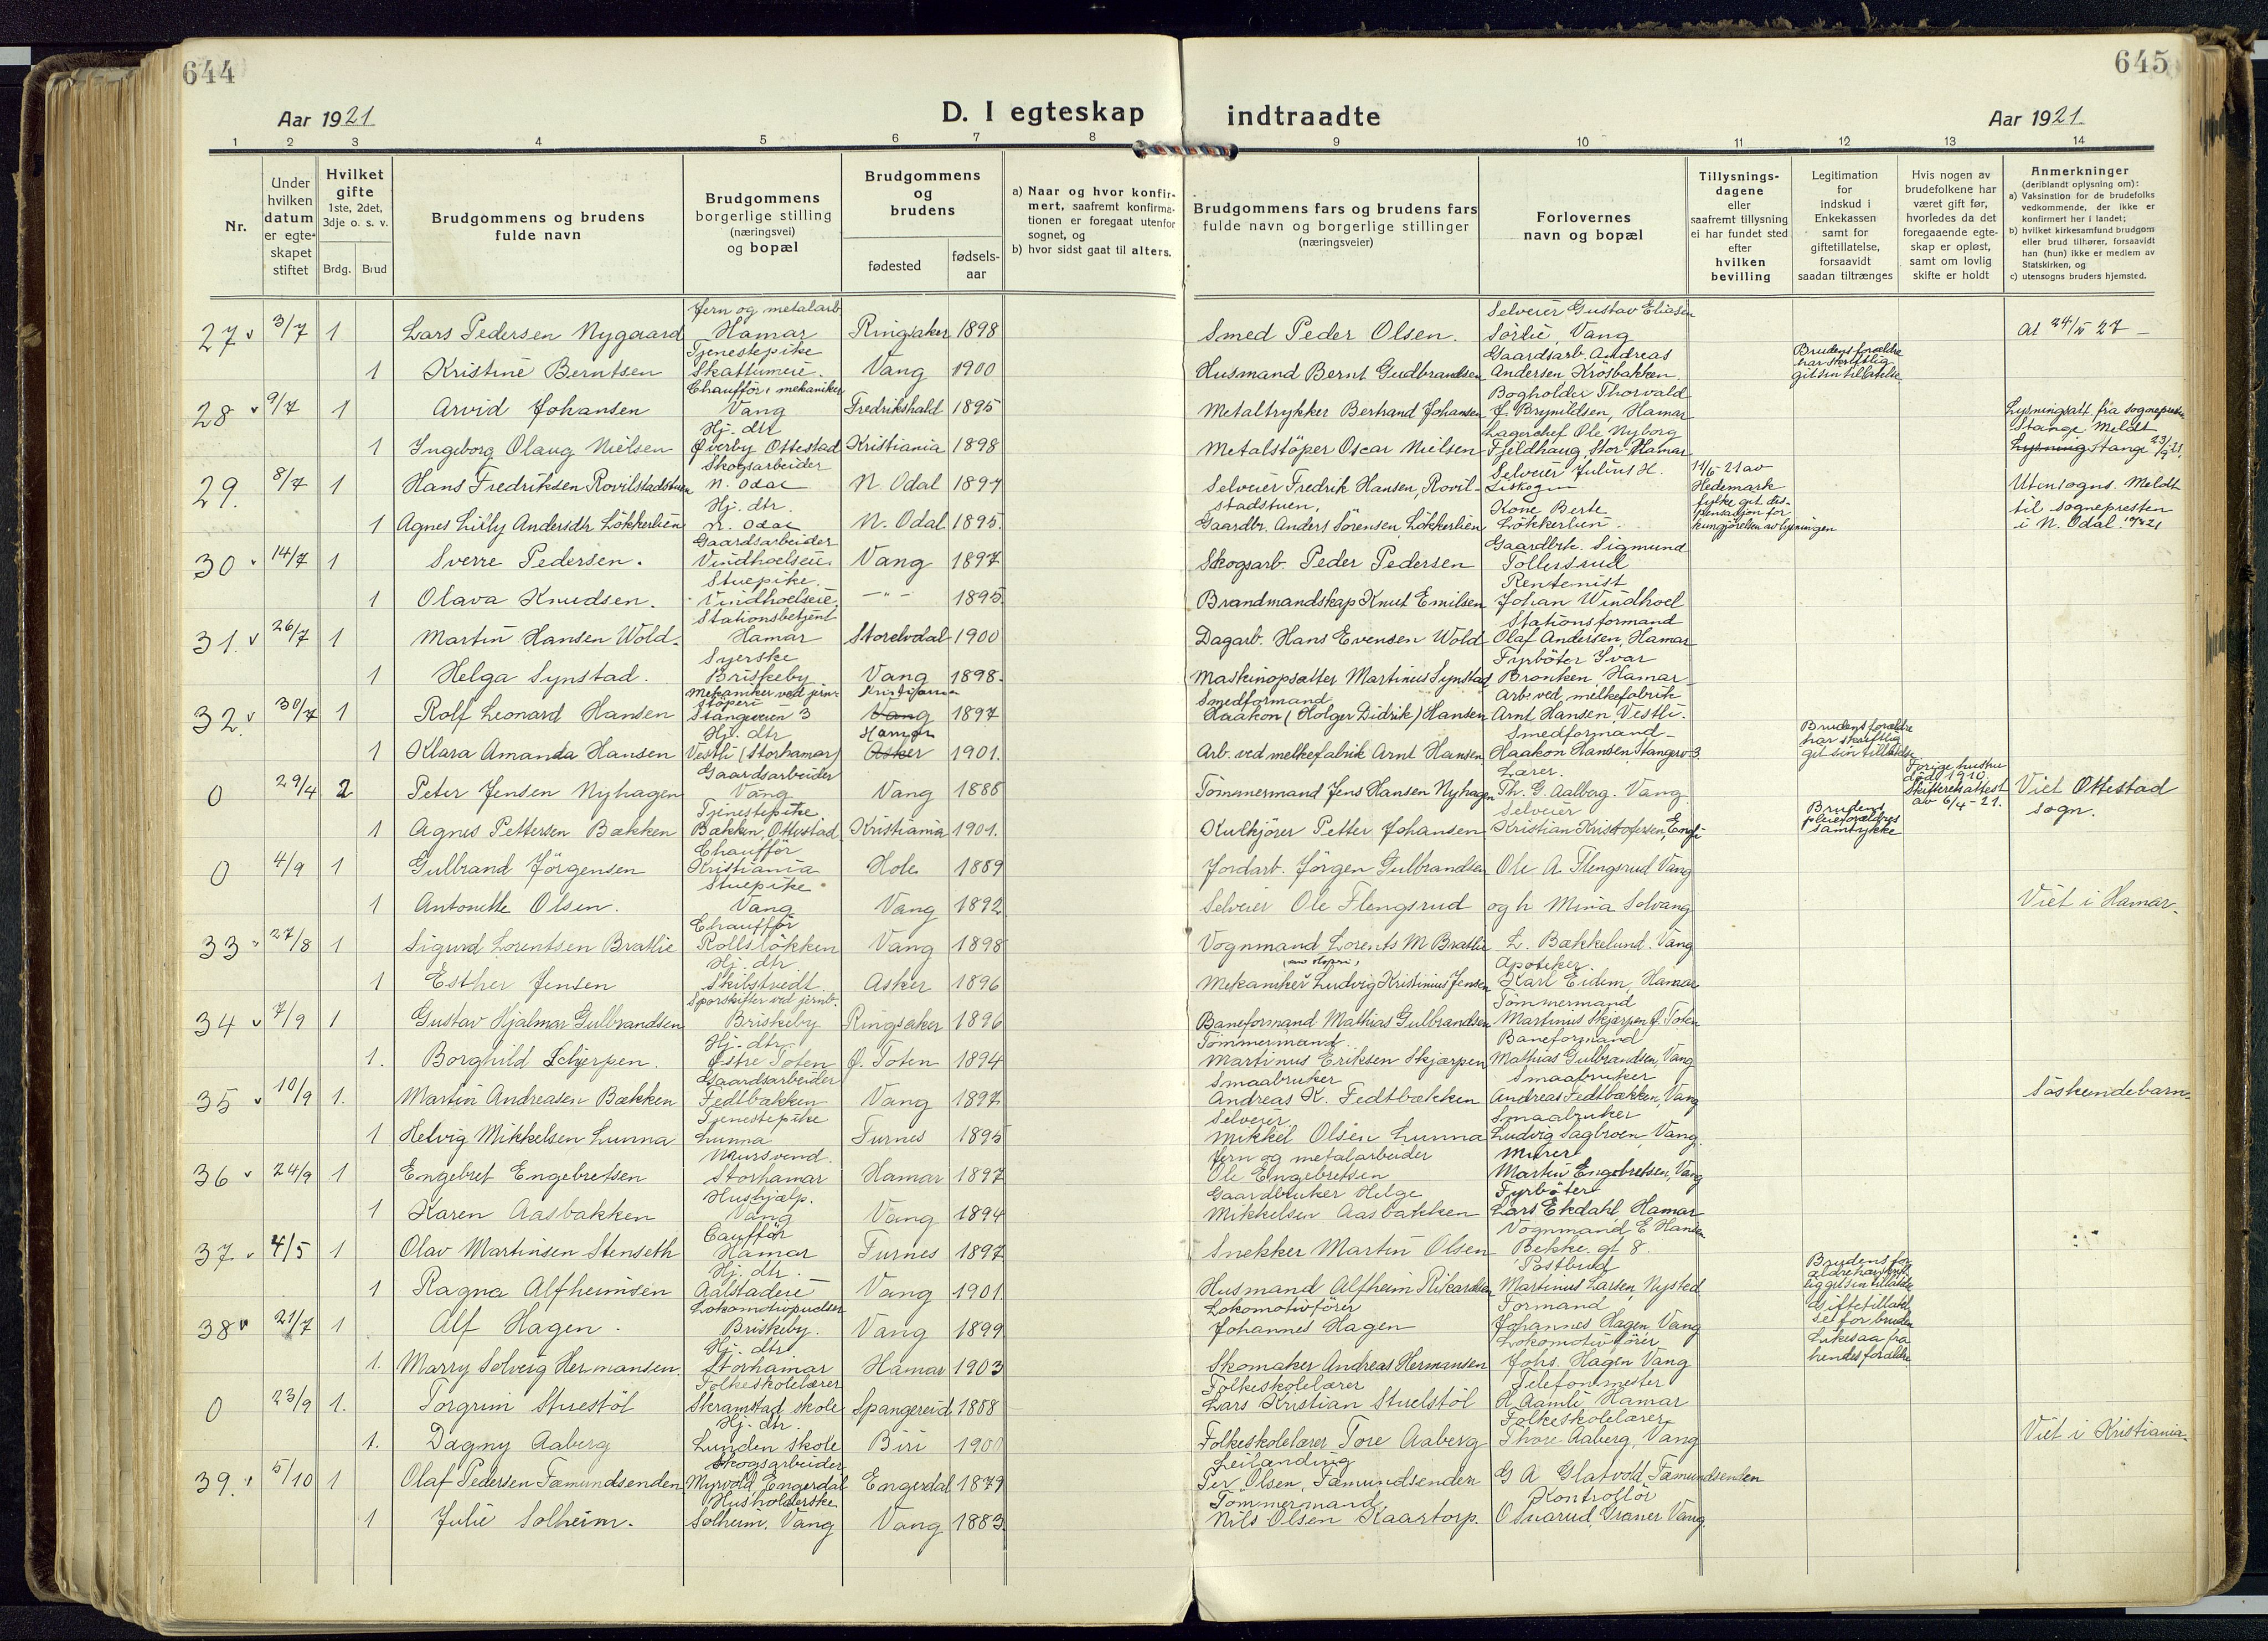 644
645
Aar 1921
D. I egteskap indtraadte
Aar 1921.
1 2 3 4 5 6 7 8 9 10 11 12 13 14
Nr.
Under hvilken datum er egteskapet stiftet
Hvilket gifte 1ste, 2det, 3dje o. s. v.
Brdg. Brud
Brudgommens og brudens fulde navn
Brudgommens borgerlige stilling (næringsvei) og bopæl
Brudgommens og brudens
fødested
fødselsaar
a) Naar og hvor konfirmert, saafremt konfirmationen er foregaat utenfor sognet, og
b) hvor sidst gaat til alters.
Brudgommens fars og brudens fars fulde navn og borgerlige stillinger (næringsveier)
Forlovernes navn og bopæl
Tillysningsdagene eller saafremt tillysning ei har fundet sted efter hvilken bevilling
Legitimation for indskud i Enkekassen samt for giftetillatelse, forsaavidt saadan tiltrænges
Hvis nogen av brudefolkene har været gift før, hvorledes da det foregaaende egteskap er opløst, samt om lovlig skifte er holdt
Anmerkninger (deriblandt oplysning om):
a) Vaksination for de brudefolks vedkommende, der ikke er konfirmert her i landet;
b) hvilket kirkesamfund brudgom eller brud tilhører, forsaavidt han (hun) ikke er medlem av Statskirken, og
c) utensogns bruders hjemsted.
27 v 3/7 1 Lars Pedersen Nygaard Jern og metalarb Hamar Ringsaker 1898 Smed Peder Olsen. Selveier Gustav Eliasen Sörlie, Vang
1 Kristine Berntsen Tjenestepike Skattumeie. Vang 1900 Husmand Bernt Gudbrandsen Gaardsarb. Andreas Andersen Krösbakken Brudens forældre har skriftlig git sin tillatelse
28 v 9/7 1 Arvid Johansen Chaufför i mekaniker Vang Fredrikshald 1895 Metaltrykker Bertrand Johansen Bogholder Thorvald J. Brynildsen, Hamar Lysningsatt. fra sogneprest Stange. Meldt
1 Ingeborg Olaug Nielsen Hj. dtr Øverby Ottestad Kristiania 1898 Metalstöper Oscar Nielsen Lagerchef Ole Nyborg Fjeldhaug, Stor-Hamar Lysning Stange 23/9 21.
29. 8/7 1 Hans Fredriksen Rovilstadstuen Skogsarbeider N. Odal N Odal 1897 Selveier Fredrik Hansen, Rovilstadstuen, Selveier Julius H. Liskogen 11/6-21 av Hedemark fylke git dispensasjon for kungjörelsen av lysningen Utensogns. Meldt til sognepresten i N. Odal
1 Agnes Lilly Andersdtr Lökkerlien Hj. dtr. N. Odal N. Odal 1895. Gaardbr. Anders Sörensen, Lökkerlien Kone Berte Lökkerlien.
30 v 14/7 1 Sverre Pedersen. Gaardsarbeider Vindhoelseie. Vang 1897 Skogsarb. Peder Pedersen Gaardbrk. Sigmund Tollersrud
1 Olava Knudsen. Stuepike. Vindhoelseie. –"– 1895. Brandmandskap Knut Emilsen Rentenist Johan Windhoel
31. v 26/7 1 Martin Hansen Wold. Stationsbetjent Hamar Storelvdal 1900 Dagarb. Hans Evensen Wold Stationsformand Olaf Andersen, Hamar
1 Helga Synstad. Syerske Briskeby Vang 1898. Maskinopsætter Martinius Synstad Fyrböter Ivar Bronken Hamar
32. v 30/7 1 Rolf Leonard Hansen Mekaniker ved jernstöperi Stangeveien 3 Kristiania Vang 1897 Smedformand Haakon (Holger Didrik) Hansen Arb. ved melkefabrik Arnt Hansen, Vestli.
1 Klara Amanda Hansen Hj. dtr Vestli (Storhamar) Hamar Asker 1901. Arb. ved melkefabrik Arnt Hansen Smedformand Haakon Hansen, Stangev 3. Brudens forældre har skriftlig git sin tillatelse
0 29/4 2 Peter Jensen Nyhagen Gaardsarbeider Vang Vang 1886 Tömmermand Jens Hansen Nyhagen Lærer. Th. G. Aalberg. Vang Forige hustru död 1910, Skifteretsattest av 6/4-21. Viet Ottestad sogn.
1 Agnes Pettersen Bækken Tjenestepike. Bækken, Ottestad Kristiania 1901. Kulkjörer Petter Johansen Selveier Kristian Kristofersen, Engli Brudens pleieforældres samtykke
0 4/9 1 Gulbrand Jörgensen Chaufför Kristiania Hole 1889 Jordarb. Jörgen Gulbrandsen Ole A. Flengsrud Vang
1 Antonette Olsen. Stuepike Vang Vang 1892 Selveier Ole Flengsrud og h. Mina Solvang Viet i Hamar.
33 27/8 1 Sigurd Lorentsen Bratlie Chaufför Rollslökken Vang 1898 Vognmand Lorents M Bratlie L. Bækkelund. Vang
1 Esther Jensen Hj. dtr. Skibstvedt Asker 1896 Mekaniker Ludvig Kristinius Jensen Apoteker Karl Eidem, Hamar
34 v 7/9 1 Gustav Hjalmar Gulbrandsen Sporskifter ved jernb. Briskeby Ringsaker 1896 Baneformand Mathias Gulbrandsen Tömmermand Martinus Skjærpen Ø. Toten
1. Borghild Schjerpen. Hj. dtr. Østre Toten Ø. Toten 1894 Tömmermand Martinus Eriksen Skjærpen Baneformand Mathias Gulbrandsen, Vang
35 v 10/9 1. Martin Andreasen Bækken Gaardsarbeider Fedtbækken Vang 1897 Smaabruker Andreas K. Fedtbækken Smaabruker Andreas Fedtbækken, Vang Söskendebarn.
1 Helvig Mikkelsen Lunna Tjenestepike Lunna Furnes 1895 Selveier Mikkel Olsen Lunna Smaabruker Ludvig Sagbroen, Vang.
36 v 24/9 1 Engebret Engebretsen Mursvend. Storhamar Hamar 1897 Jern og metalarbeider Ole Engebretsen Murer Martin Engebretsen, Vang
1 Karen Aasbakken Hushjælp. Vang Vang 1894 Gaardbruker Helge Mikkelsen Aasbakken Fyrböter Lars Ekdahl Hamar
37. v 4/5 1 Olav Martinsen Stenseth Caufför Hamar Furnes 1897 Snekker Martin Olsen Vognmand E Hansen Bekke. gt 8.
1 Ragna Alfheimsen Hj. dtr. Aalstadeie Vang 1901 Husmand Alfheim Rikardsen Postbud Martinus Larsen, Nysted Brudens forældre har skriftlig git sin tillatelse
38 v 21/7 1 Alf Hagen. Lokomotivpudser Briskeby. Vang 1899 Lokomotivförer Johannes Hagen Formand Johannes Hagen Vang Giftetillatelse for bruden
1. Marry Solveig Hermansen. Hj. dtr Storhamar Hamar 1903 Skomaker Andreas Hermansen Lokomotivförer Johs. Hagen Vang Likesaa fra hendes forældre
0 23/9 1. Torgrim Stuestöl Folkeskolelærer Skramstad skole Spangereid 1888 Folkeskolelærer Lars Kristian Stuelstöl Telefonmester H. Aamli Hamar
1. Dagny Aaberg Hj. dtr. Lunden skole Biri 1900 Folkeskolelærer Tore Aaberg Folkeskolelærer Thore Aaberg, Vang Viet i Kristiania.
39. v 5/10 1 Olaf Pedersen Fæmundsenden Skogsarbeider Myrvold, Engerdal Engerdal 1879 Leilænding Per Olsen, Fæmundsenden G A Glatvold Fæmundsenden
1 Julie Solheim. Husholderske Solheim, Vang Vang 1883. Tömmermand Nils Olsen Kaastorp. Kontrollör O Snarud, Vang.